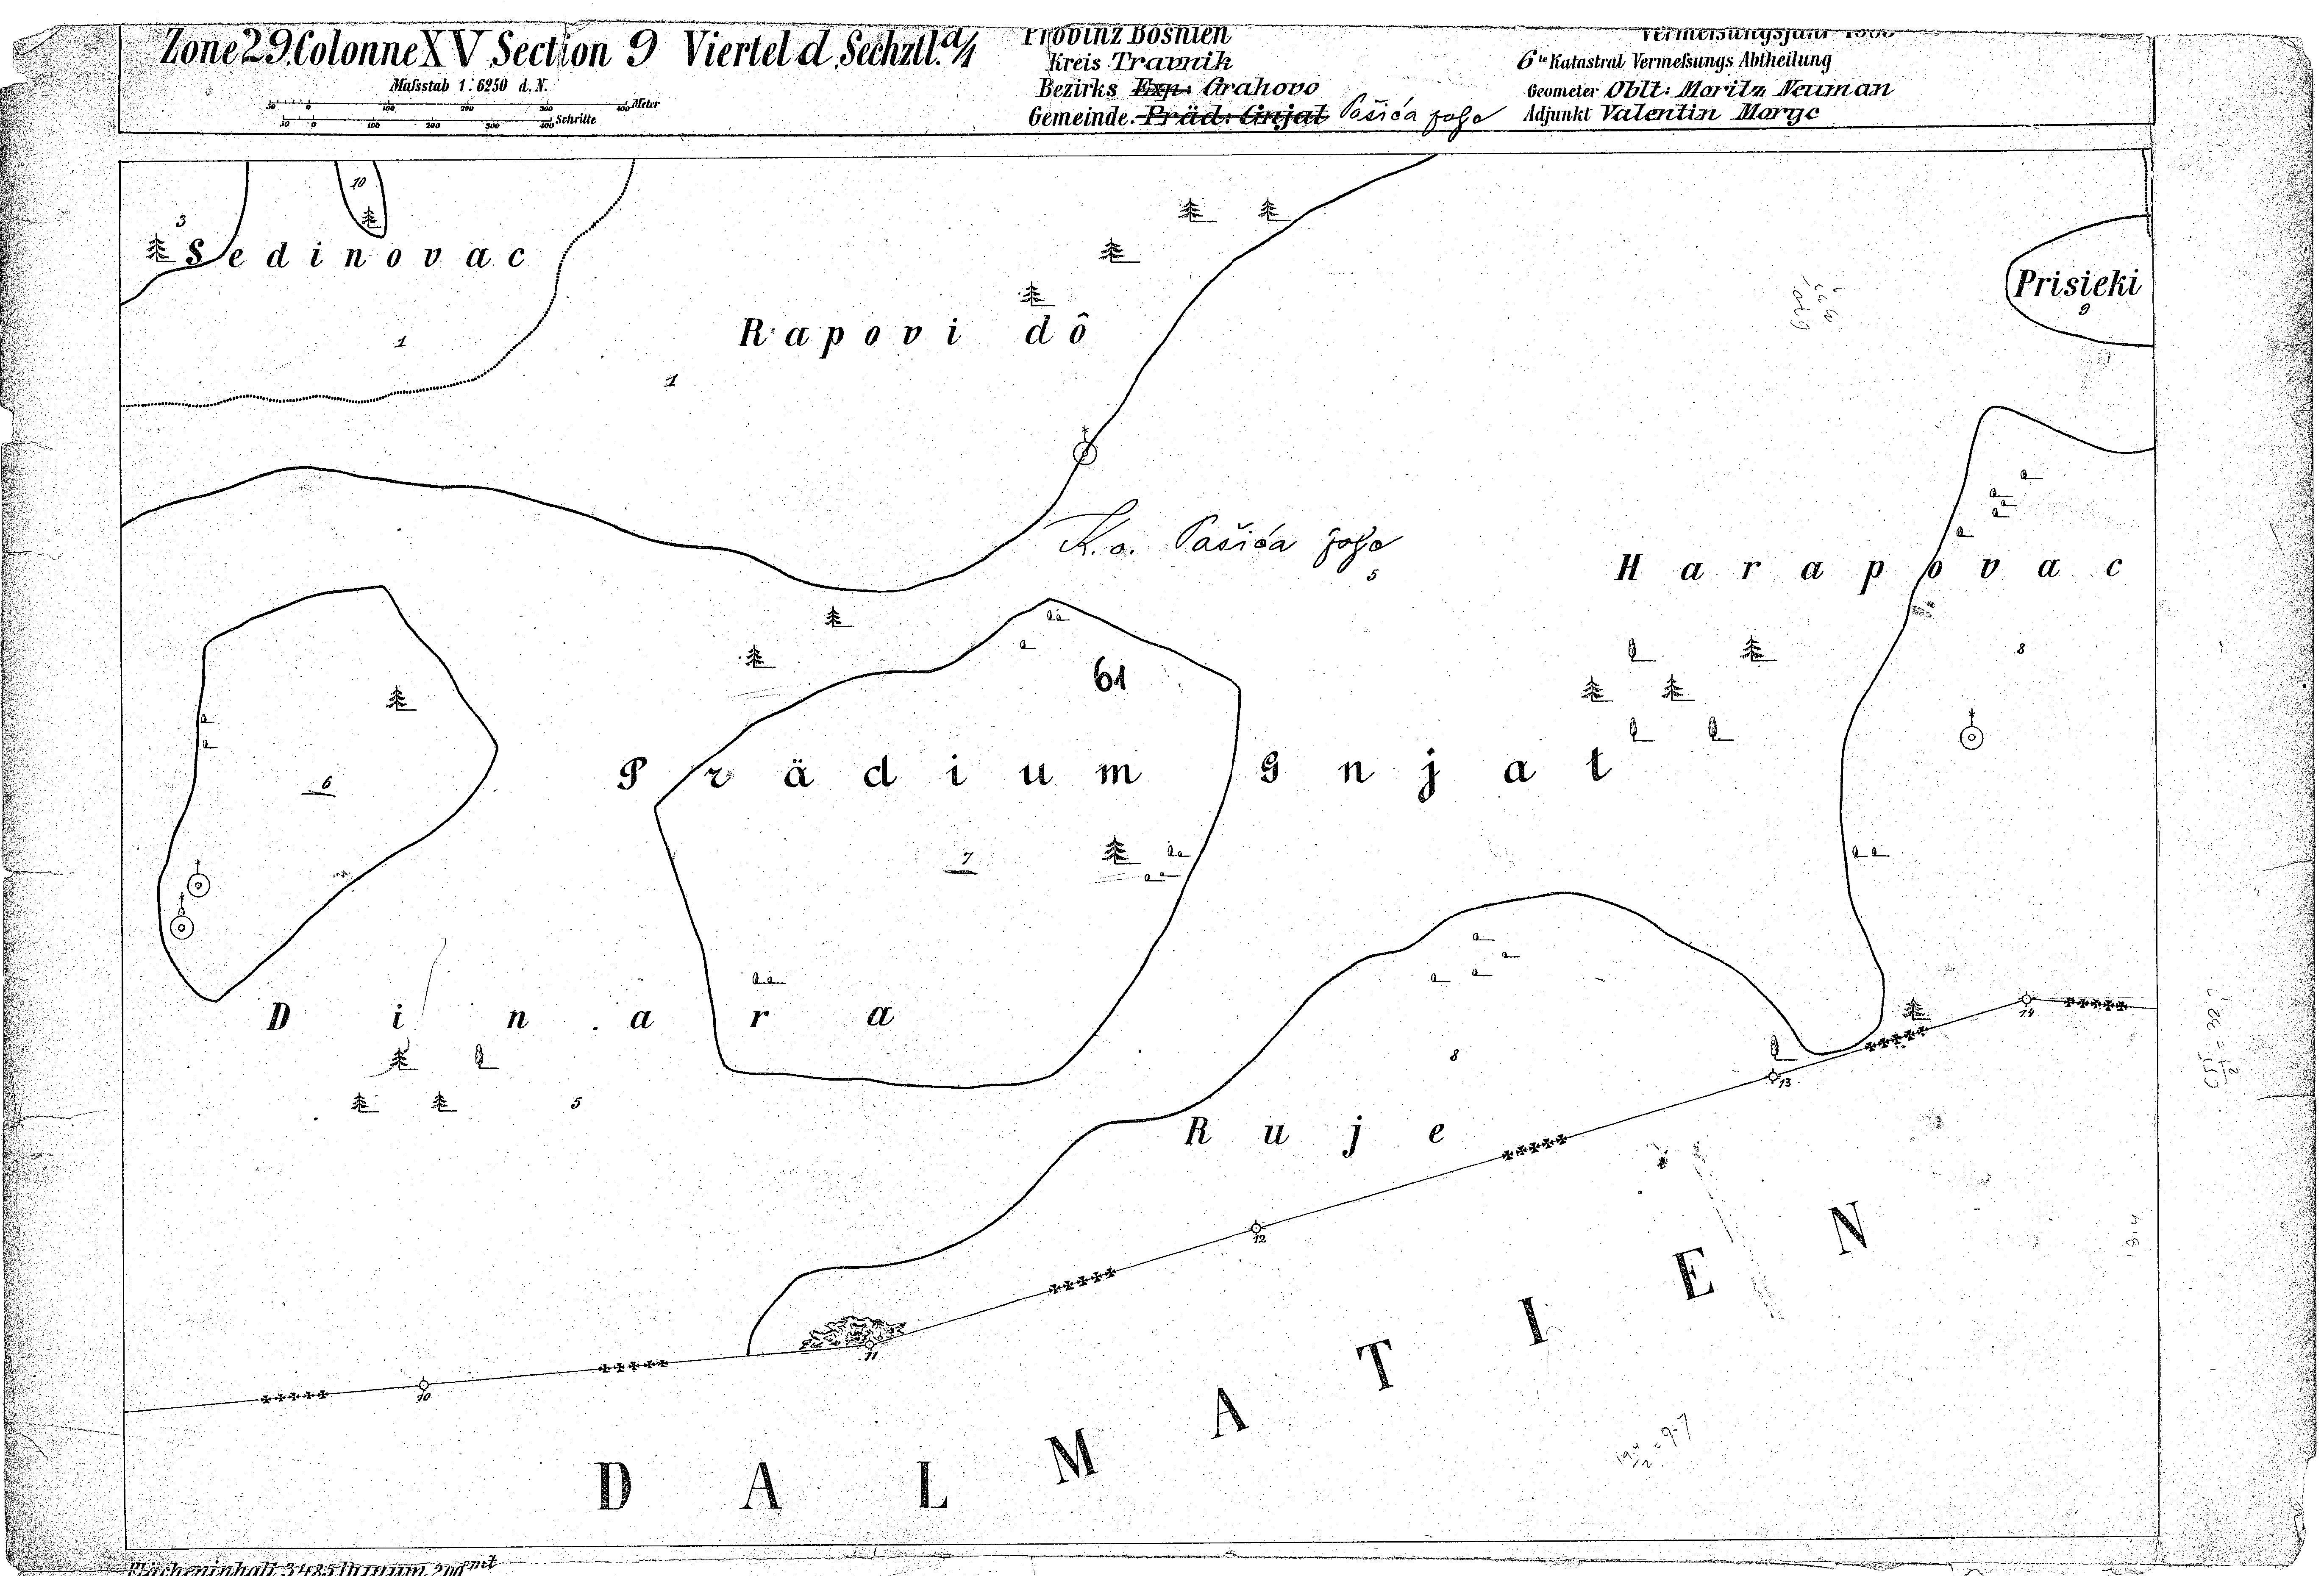 Zone 29. Colonne XV Section 9 Viertel d. Sechztl. d/1
Maſsstab 1:6250 d. N.
50 0 100 200 300 400 Meter
50 0 100 200 300 400 Schritte
Provinz Bosnien
Kreis Travnik
Bezirks Exp: Grahovo
Gemeinde. Präd: Gnjat Pašića polje
Vermeſsungsjahr
6te Katastral Vermeſsungs Abtheilung
Geometer Oblt: Moritz Neuman
Adjunkt Valentin Morgc
10
3
Sedinovac
1
Rapovi dô
1
Prisieki
9
K.o. Pašića polje
5
Harapovac
8
61
6
Prädium Gnjat
7
Dinara
5
8
Ruje
14
13
12
11
10
DALMATIEN
Flächeninhalt 3485 Dunum, 200 □mt